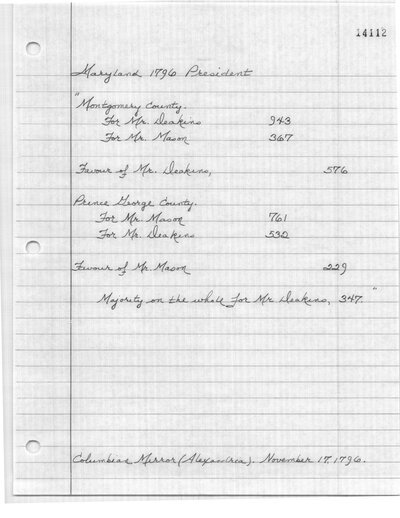 14112
Maryland 1796 President
"Montgomery County.
For Mr. Deakins 943
For Mr. Mason 367
Favour of Mr. Deakins, 576
Prince George County.
For Mr. Mason 761
For Mr. Deakins 532
Favour of Mr. Mason 229
Majority on the whole for Mr Deakins, 347."
Columbian Mirror (Alexandria). November 17, 1796.